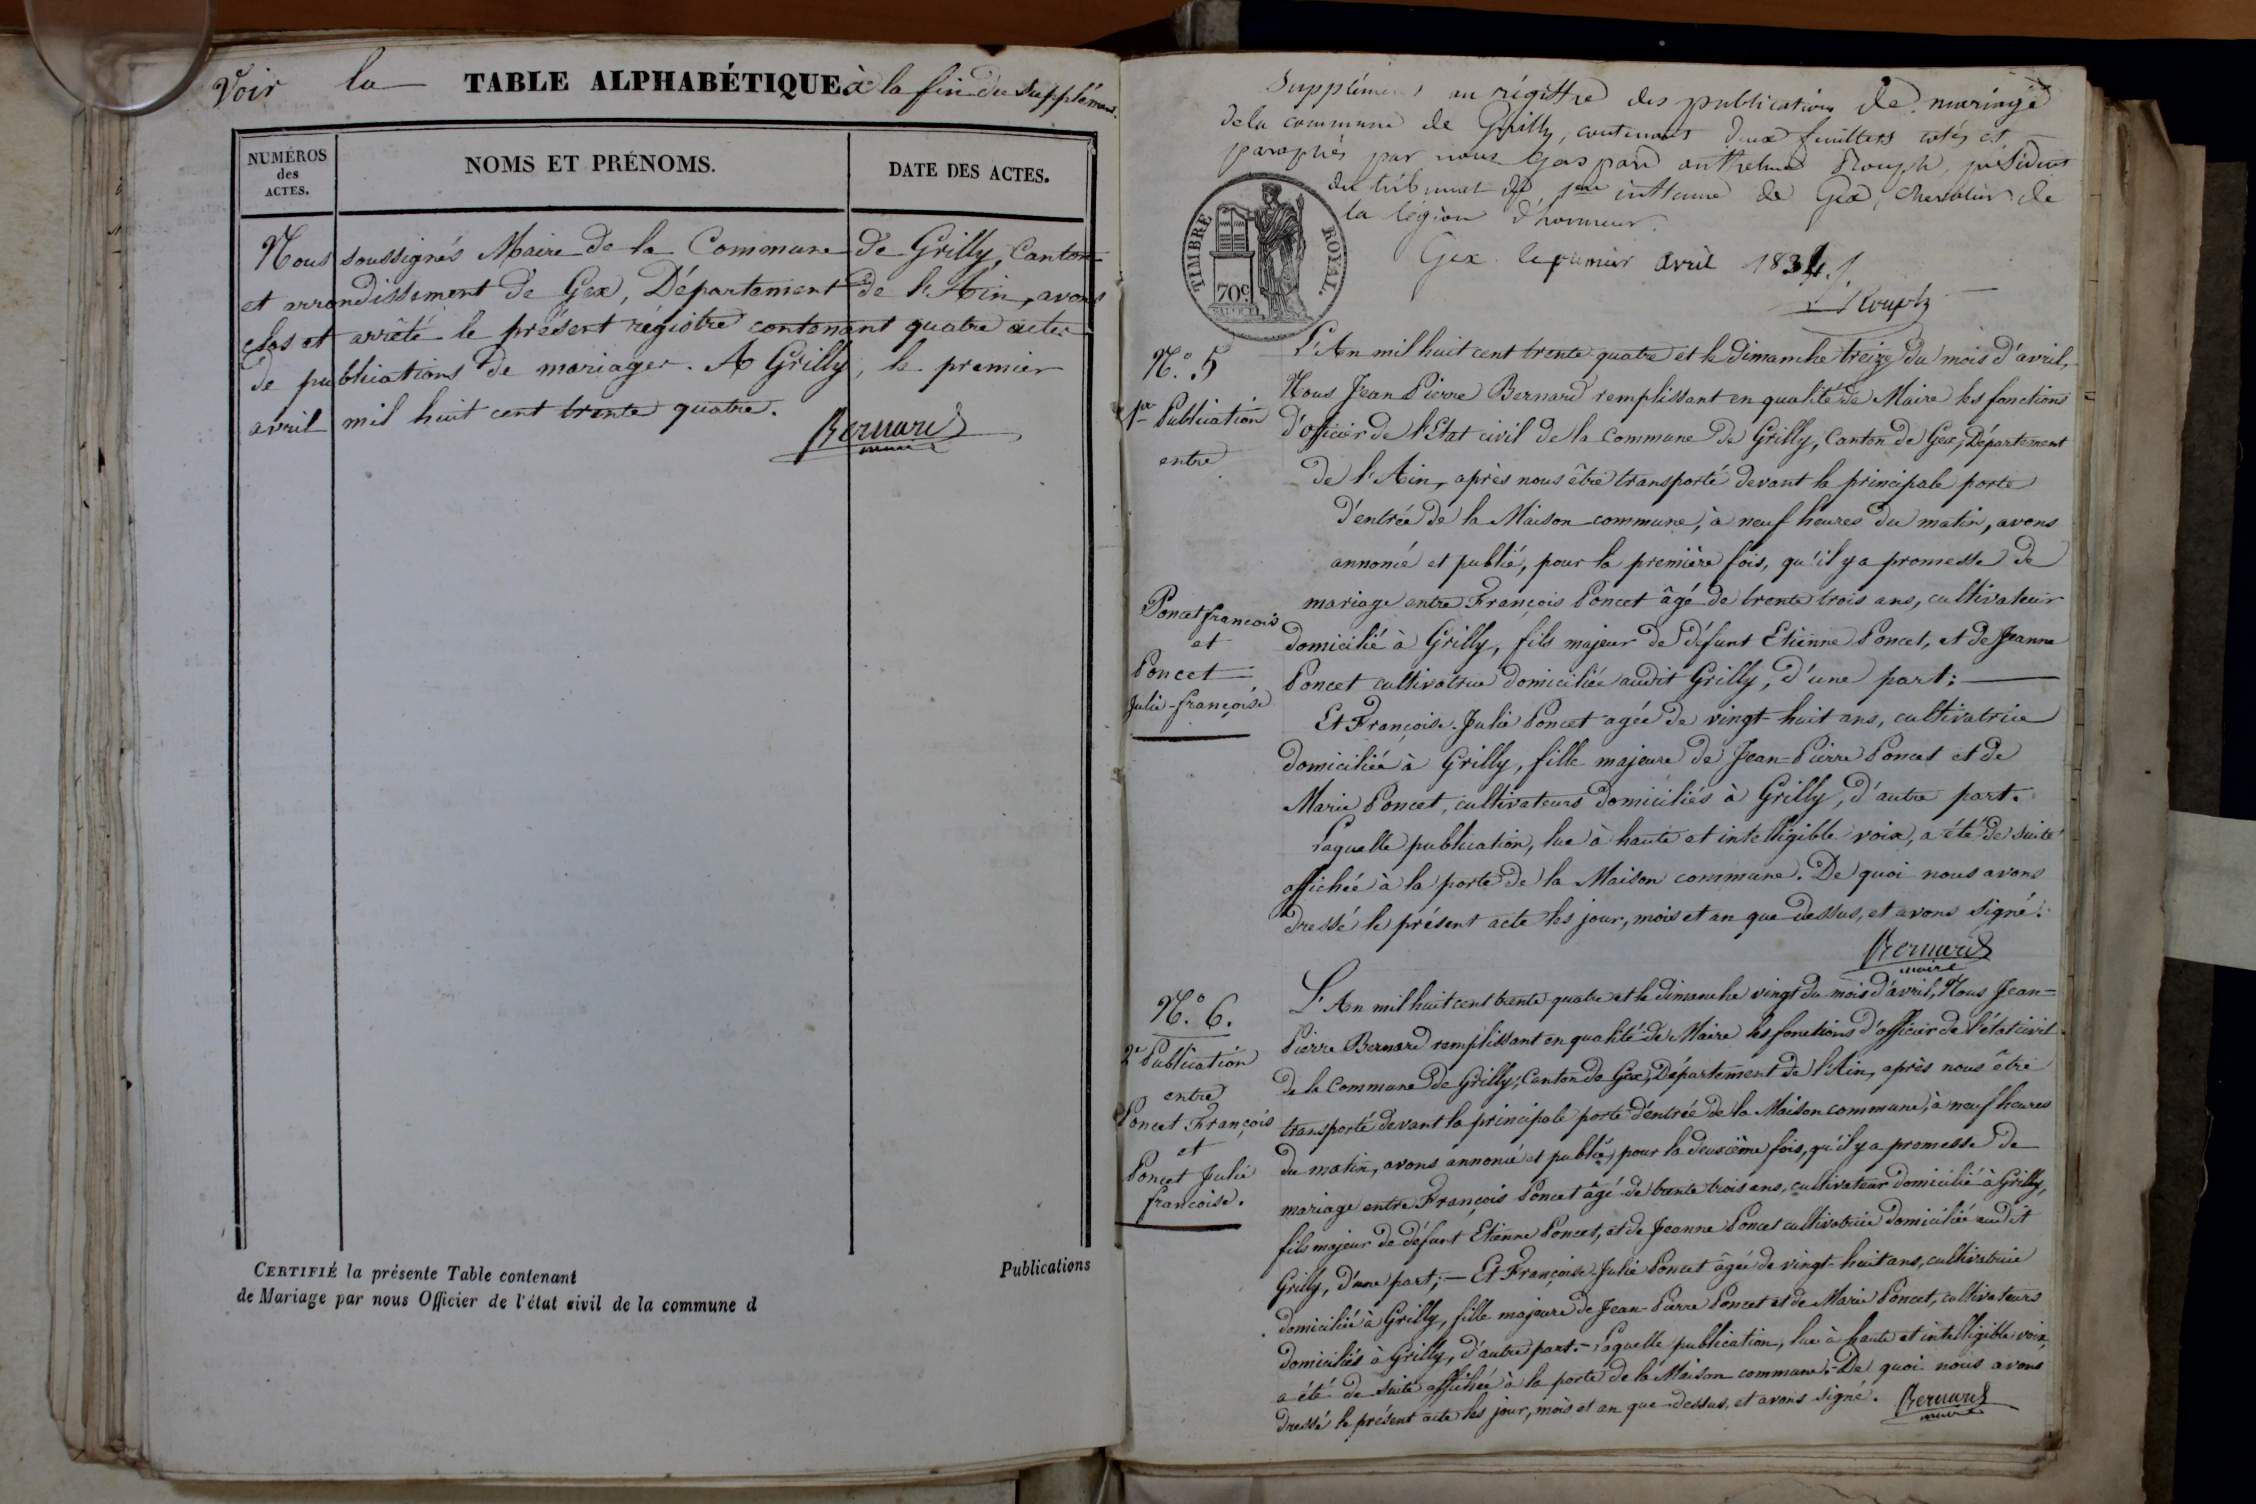 Voir la TABLE ALPHABÉTIQUE à la fin du Supplément.
NUMÉROS
des
ACTES.
NOMS ET PRÉNOMS.
DATE DES ACTES.
Nous soussignés Maire de la Commune de Grilly, Canton
et arrondissement de Gex, Département de l'Ain, avons
clos et arrêté le présent régistre contenant quatre actes
de publications de mariages. A Grilly, le premier
avril mil huit cent trente quatre.
Bernard
maire
CERTIFIÉ la présente Table contenant Publications
de Mariage par nous Officier de l'état civil de la commune d
Supplément au régistre des publications de mariage
de la commune de Grilly, contenant deux feuillets cotés et
paraphés par nous Gaspard anthelme Rouph, président
du tribunal de 1ere instance de Gex, Chevalier de
la légion d'honneur.
Gex le premier avril 1834.
Rouph
TIMBRE ROYAL.
70c
N.° 5
1re Publication
entre
Poncet françois
et
Poncet
Julie-françoise
L'An mil huit cent trente quatre et le dimanche treize du mois d'avril,
Nous Jean Pierre Bernard remplissant en qualité de Maire les fonctions
d'officier de l'Etat civil de la commune de Grilly, Canton de Gex, Département
de l'Ain, après nous être transporté devant la principale porte
d'entrée de la Maison commune, à neuf heures du matin, avons
annoncé et publié, pour la première fois, qu'il y a promesse de
mariage entre François Poncet âgé de trente trois ans, cultivateur
domicilié à Grilly, fils majeur de défunt Etienne Poncet, et de Jeanne
Poncet cultivatrice domiciliée audit Grilly, d'une part;
Et Françoise-Julie Poncet agée de vingt-huit ans, cultivatrice
domiciliée à Grilly, fille majeure de Jean-Pierre Poncet et de
Marie Poncet, cultivateurs domiciliés à Grilly, d'autre part.
Laquelle publication, lue à haute et intelligible voix, a été de suite
affichée à la porte de la Maison commune. De quoi nous avons
dressé le présent acte les jour, mois et an que dessus, et avons signé.
Bernard
maire
N.° 6.
2e Publication
entre
Poncet François
et
Poncet Julie
françoise.
L'An mil huit cent trente quatre et le dimanche vingt du mois d'avril, Nous Jean=
Pierre Bernard remplissant en qualité de Maire les fonctions d'officier de l'état civil
de la Commune de Grilly, Canton de Gex, Département de l'Ain, après nous être
transporté devant la principale porte d'entrée de la Maison commune, à neuf heures
du matin, avons annoncé et publié, pour la deuxième fois, qu'il y a promesse de
mariage entre François Poncet âgé de trente trois ans, cultivateur domicilié à Grilly,
fils majeur de défunt Etienne Poncet, et de Jeanne Poncet cultivatrice domiciliée audit
Grilly, d'une part; — Et Françoise-Julie Poncet âgée de vingt-huit ans, cultivatrice
domiciliée à Grilly, fille majeure de Jean-Pierre Poncet et de Marie Poncet, cultivateurs
domiciliés à Grilly, d'autre part. - Laquelle publication, lue à haute et intelligible voix,
a été de suite affichée à la porte de la Maison commune. - De quoi nous avons
dressé le présent acte les jour, mois et an que dessus, et avons signé. Bernard
maire